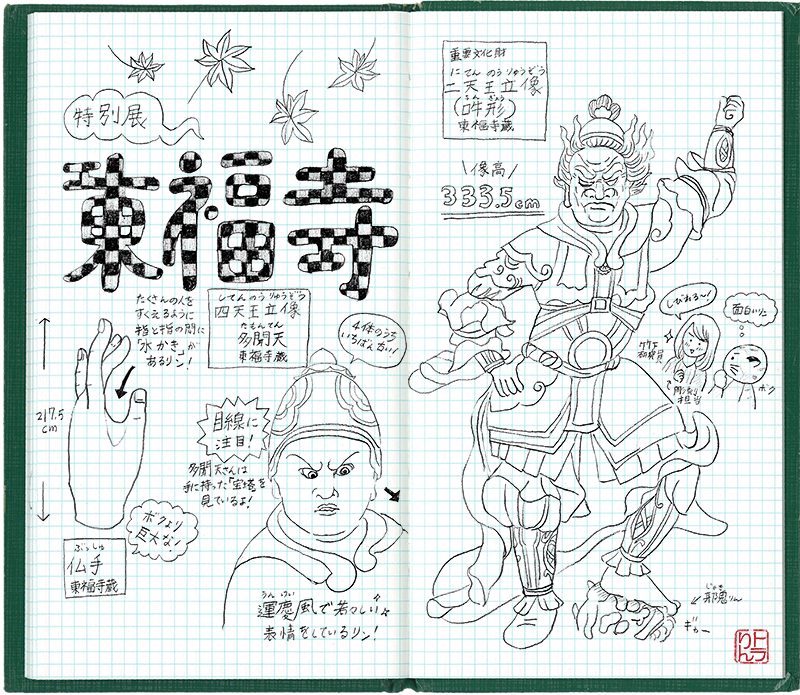 特別展
東福寺
たくさんの人を
すくえるように
指と指の間に
「水かき」が
あるリン!
217.5
cm
ボクより
巨大な!
ぶっしゅ
仏手
東福寺蔵
してんのうりゅうぞう
四天王立像
たもんてん
多聞天
東福寺蔵
4体のうち
いちばん古い!
目線に
注目!
多聞天さんは
手に持った「宝塔」を
見ているよ!
うんけい
運慶風で若々しい
表情をしているリン!
重要文化財
にてんのうりゅうぞう
二天王立像
うんぎょう
(吽形)
東福寺蔵
像高
333.5cm
しびれる~!
面白いリン
担当
ボク
じゃき
邪鬼リン
ギャー
トラ
りん